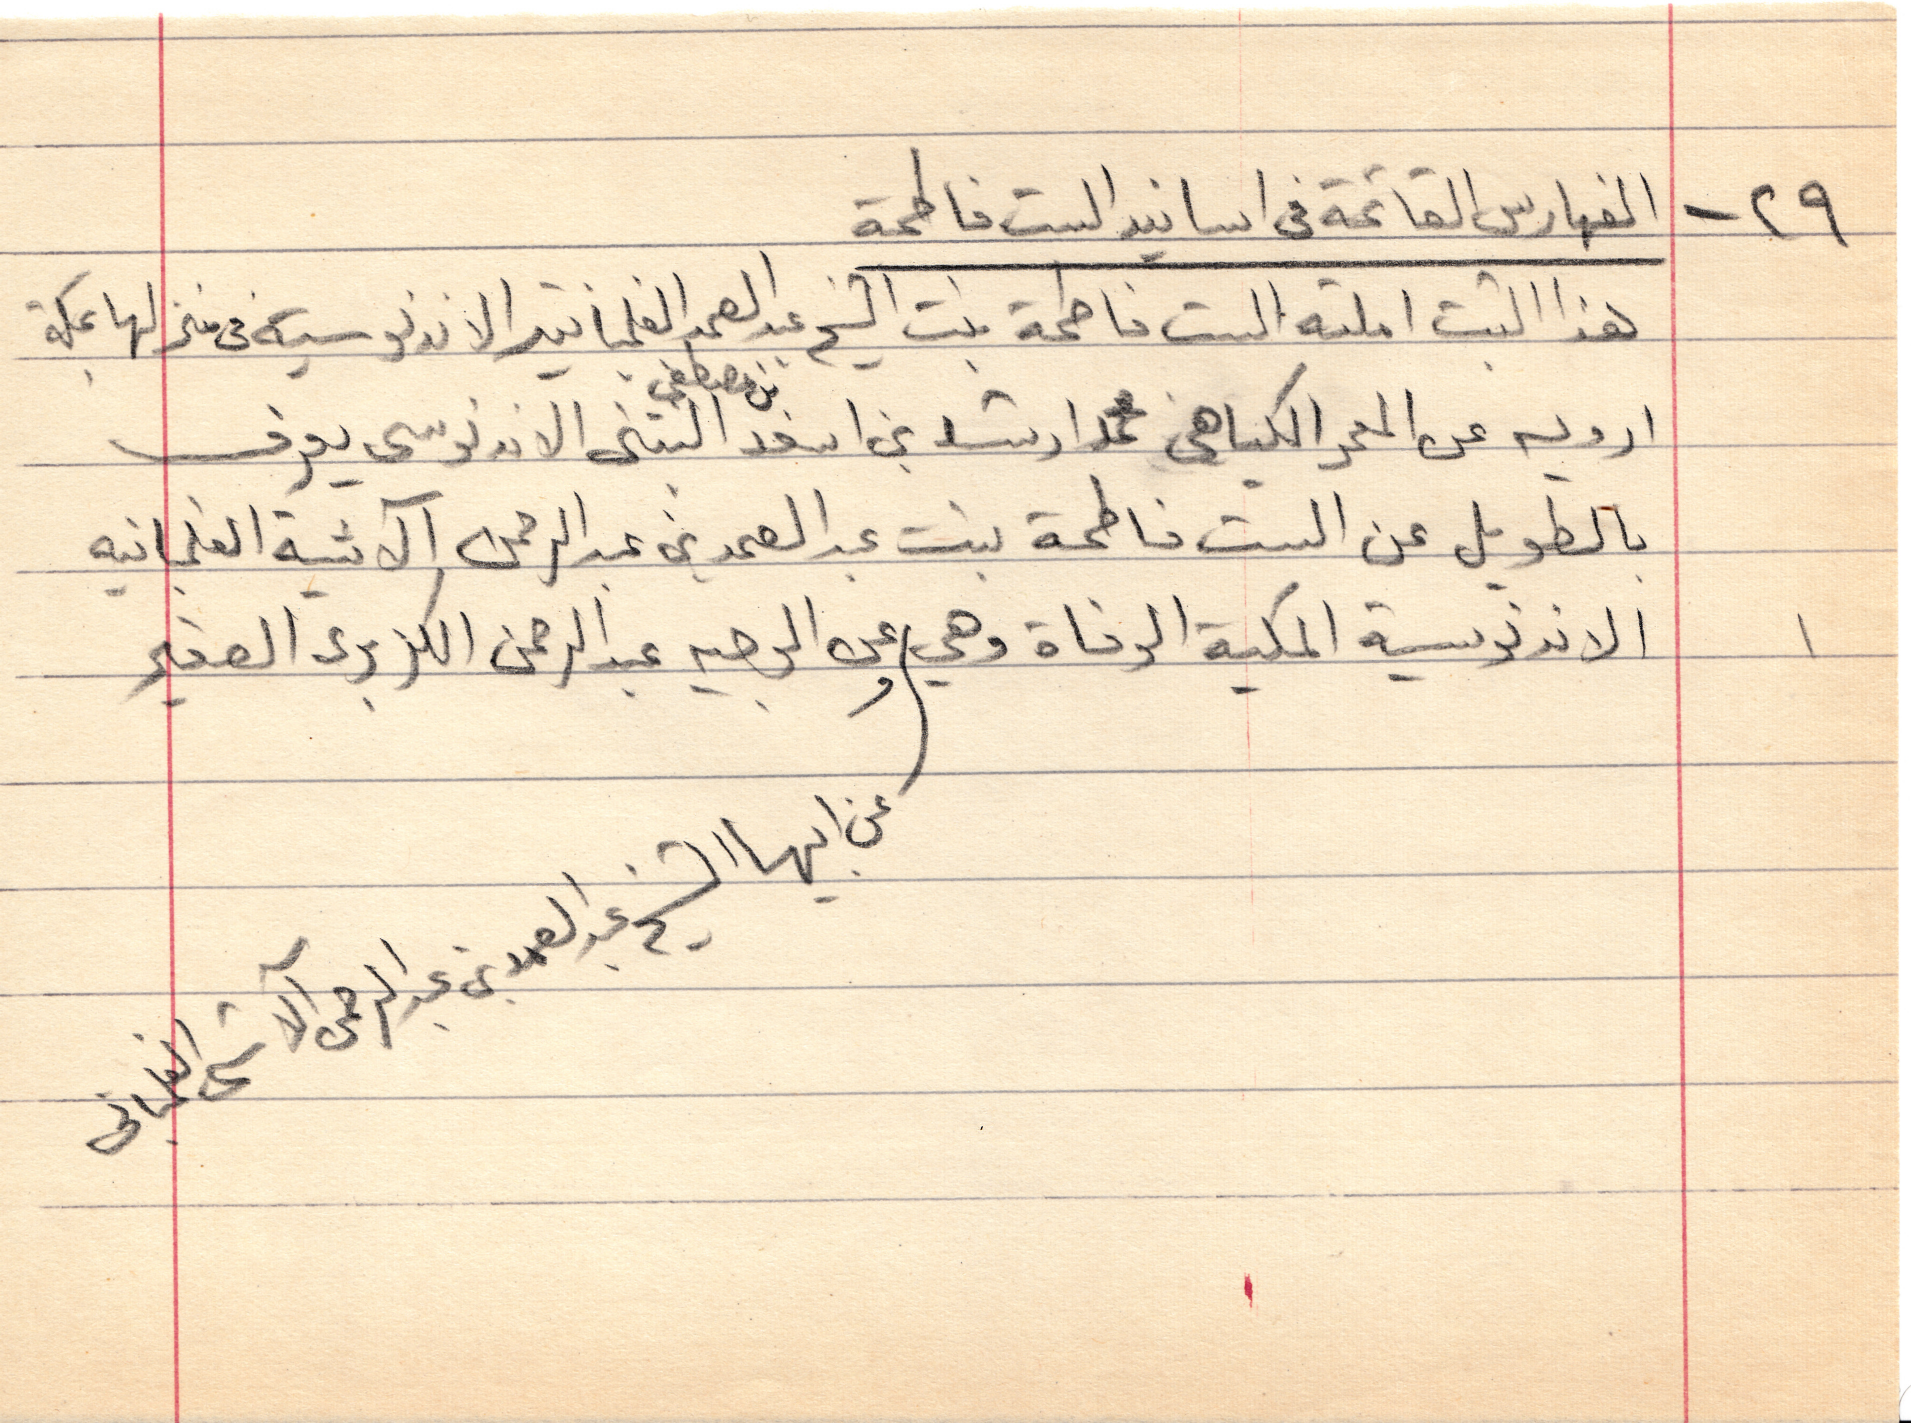 ٢٩ - الفهارس القائمة فى اسانيد الست فاطمة
هذا الثبت املته الست فاطمة بنت الشيخ عبد الصمد الفلمبانية الاندنوسية فى منزلها بمكة
ارويه عن المعمر الكياهي محمد ارشد بن اسعد البتنى الاندنوسى يعرف
بن مصطفى
بالطويل عن الست فاطمة بنت عبد الصمد بن عبد الرحمن الآشية الفلمبانيه
١ الاندنوسية المكية الوفاة وهي وعن الوجيه عبد الرحمن الكزبرى الصغير
عن ابيها الشيخ عبد الصمد بن عبد الرحمن الآشى الفلمبانى